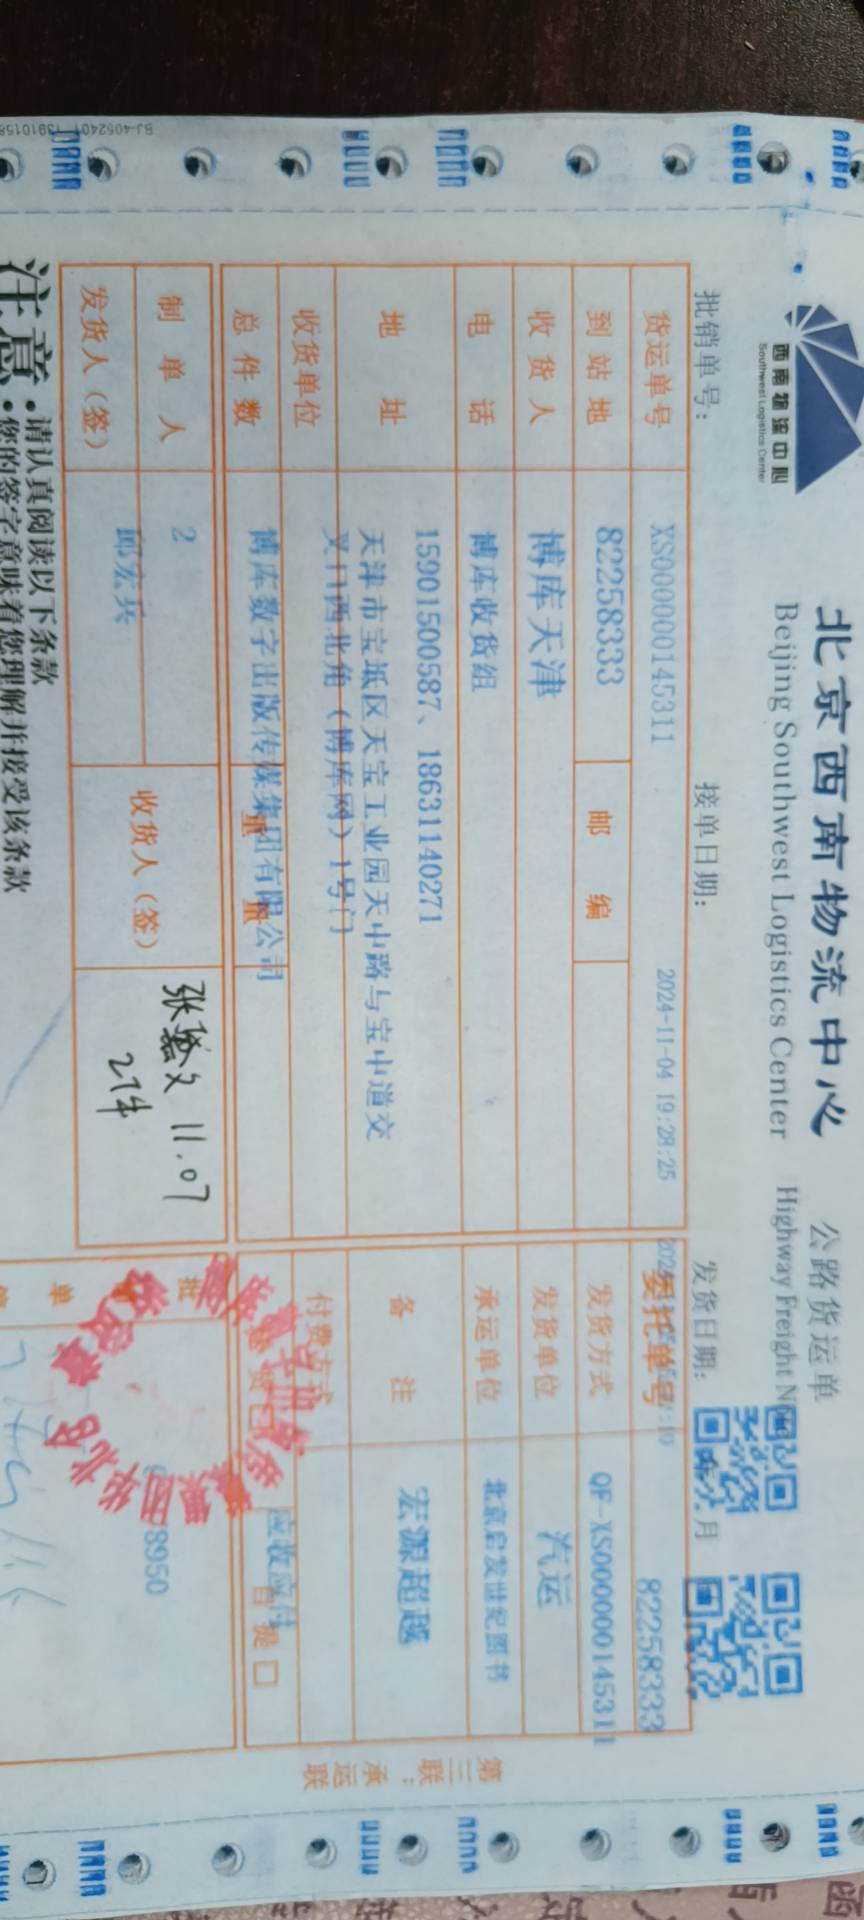 西南物流中心
Southwest Logistics Center
北京西南物流中心 公路货运单
Beijing Southwest Logistics Center Highway Freight
批销单号: 接单日期: 发货日期: 月
货运单号 XS000000145311 2024-11-04 19:28:25 委托单号 82258333
到站地 82258333 邮编 发货方式 QF-XS000000145311
收货人 博库天津 发货单位 汽运
电话 博库收货组 承运单位 北京启发世纪图书
15901500587、18631140271
地址 天津市宝坻区天宝工业园天中路与宝中道交 备注 宏源超越
叉口西北角(博库网)1号门
收货单位 付费方式
总件数 博库数字出版传媒集团有限公司 应收应付
自提口
制单人 2 收货人(签) 张 文 11.07
27件
发货人(签) 邱宏兵
批
单
8950
第三联:承运联
注意:
·请认真阅读以下条款
·您的签字意味着您理解并接受该条款
BJ-4052401